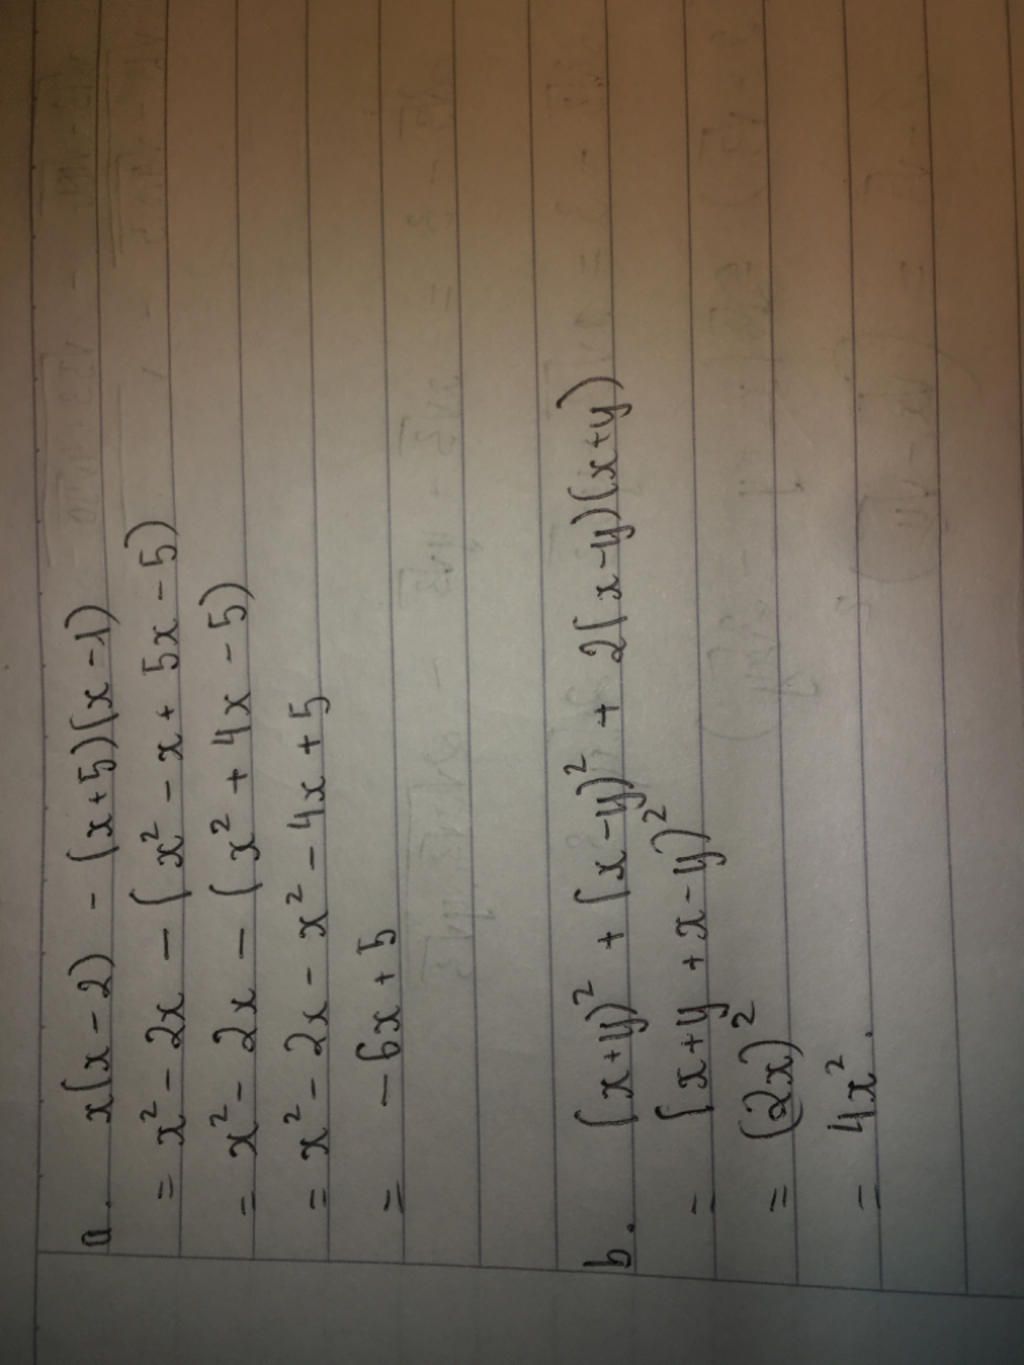 a. x(x - 2) - (x + 5)(x - 1)
= x² - 2x - (x² - x + 5x - 5)
= x² - 2x - (x² + 4x - 5)
= x² - 2x - x² - 4x + 5
= - 6x + 5
b. (x+y)² + (x-y)² + 2(x-y)(x+y)
= (x+y + x-y)²
= (2x)²
= 4x².